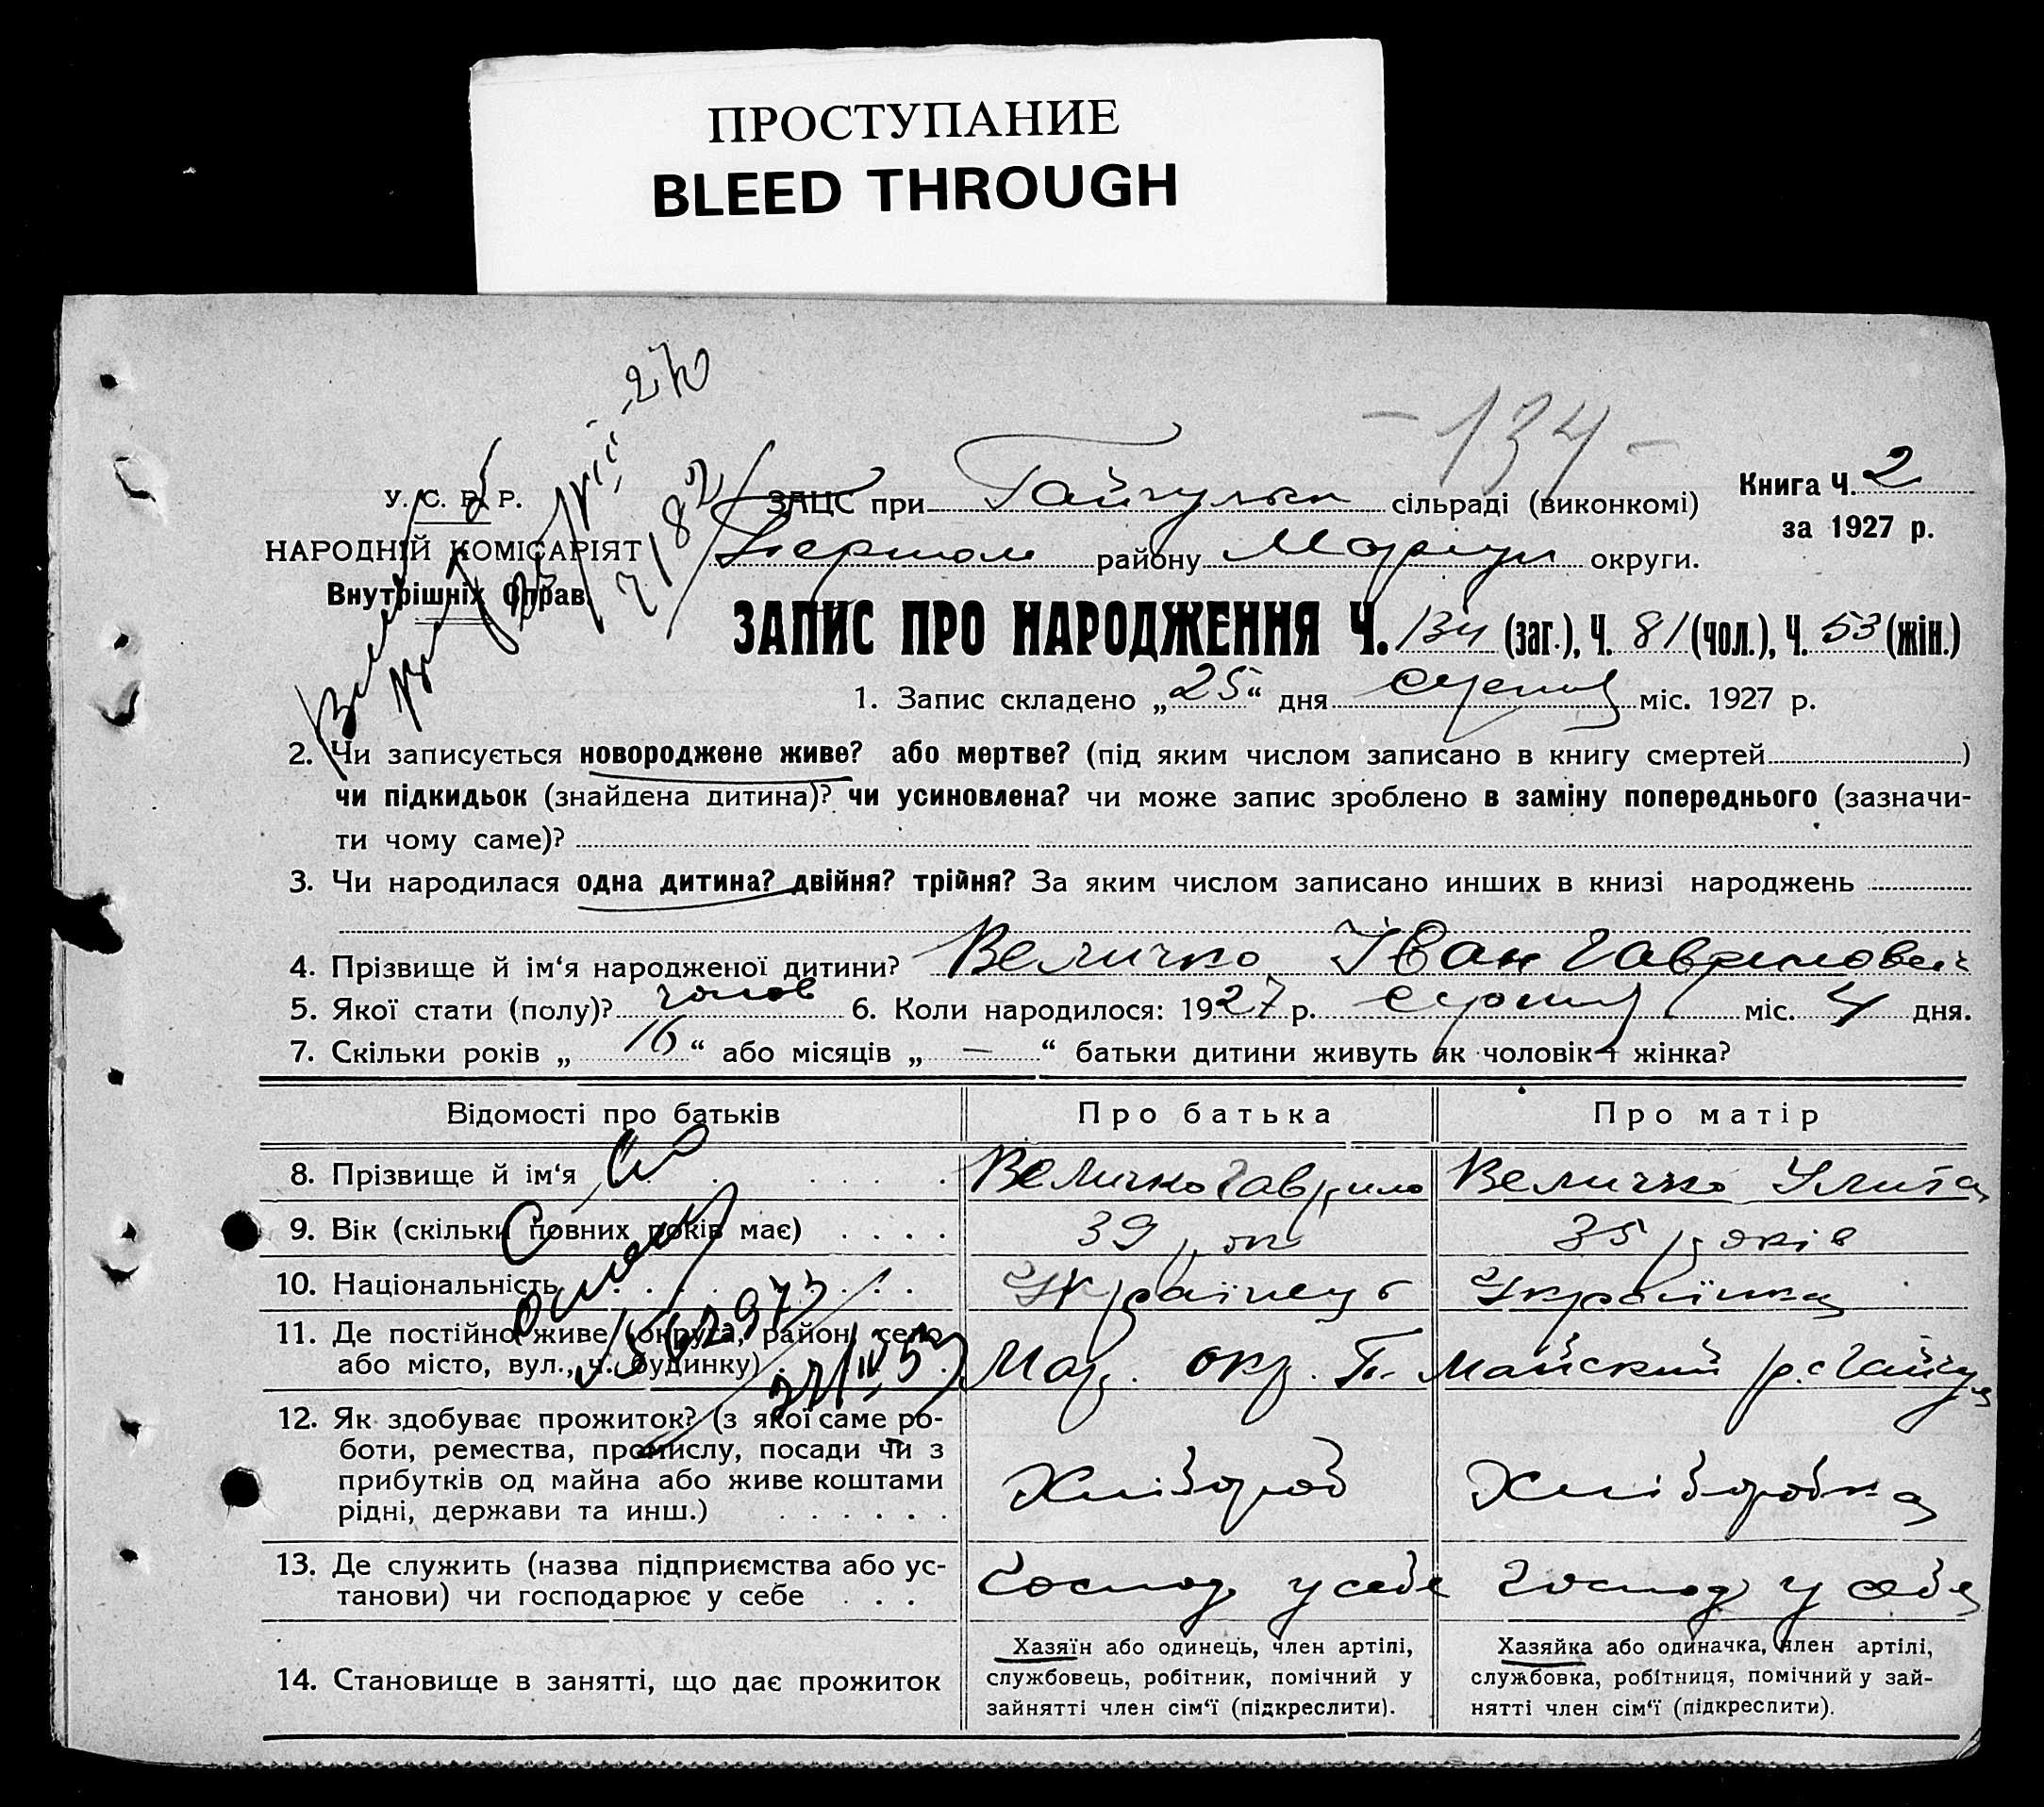 ПРОСТУПАНИЕ
BLEED THROUGH
- 134 -
У. С. Р. Р.
НАРОДНІЙ КОМІСАРІЯТ
Внутрішніх Справ.
7182
ЗАЦС при Гайчульск сільраді (виконкомі)
Книга Ч. 2
за 1927 р.
району Маріуп округи.
ЗАПИС ПРО НАРОДЖЕННЯ Ч. 134 (заг.), Ч. 81 (чол.), Ч. 53 (жін.)
1. Запис складено „25“ дня серпня міс. 1927 р.
2. Чи записується новороджене живе? або мертве? (під яким числом записано в книгу смертей)
чи підкидьок (знайдена дитина)? чи усиновлена? чи може запис зроблено в заміну попереднього (зазначи-
ти чому саме)?
3. Чи народилася одна дитина? двійня? трійня? За яким числом записано инших в книзі народжень
4. Прізвище й ім‘я народженої дитини? Величко Іван Гаврилович
5. Якої стати (полу)? чолов 6. Коли народилося: 1927 р. серпня міс. 4 дня.
7. Скільки років „16“ або місяців „—“ батьки дитини живуть як чоловік і жінка?
Відомості про батьків Про батька Про матір
8. Прізвище й ім‘я Величко Гаврило Величко Улита
9. Вік (скільки повних років має) 39 рок 35 років
10. Національність Українець Українка
11. Де постійно живе (округа, район, село
або місто, вул., ч. будинку) Мар. окр. П. Майский р. с Гайчул
12. Як здобуває прожиток? (з якої саме ро-
боти, ремества, промислу, посади чи з
прибутків од майна або живе коштами
рідні, держави та инш.) Хлібороб Хліборобка
13. Де служить (назва підприємства або ус-
танови) чи господарює у себе Господ у себе Господ у себе
14. Становище в занятті, що дає прожиток
Хазяїн або одинець, член артілі,
службовець, робітник, помічний у
зайнятті член сім‘ї (підкреслити).
Хазяйка або одиначка, член артілі,
службовка, робітниця, помічний у зай-
нятті член сім‘ї (підкреслити).